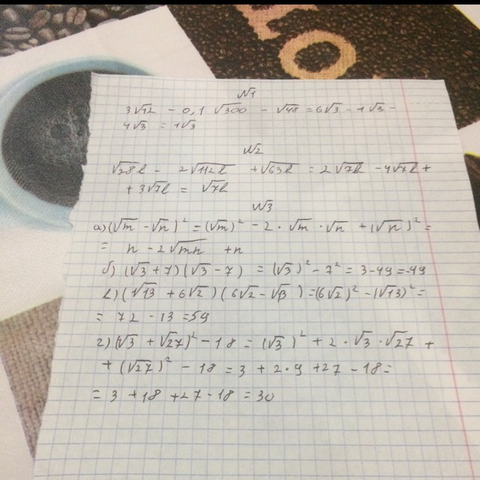 N1
3√12 - 0,1√300 - √48 = 6√3 - 1√3 -
4√3 = 1√3
N2
√28b - 2√112b + √63b = 2√7b - 4√7b +
+ 3√7b = √7b
N3
а) (√m - √n)² = (√m)² - 2·√m·√n + (√n)² =
= n - 2√mn + n
б) (√3 + 7)(√3 - 7) = (√3)² - 7² = 3 - 49 = -49
в) (√13 + 6√2)(6√2 - √13) = (6√2)² - (√13)² =
= 72 - 13 = 59
г) (√3 + √27)² - 18 = (√3)² + 2·√3·√27 +
+ (√27)² - 18 = 3 + 2·9 + 27 - 18 =
= 3 + 18 + 27 - 18 = 30